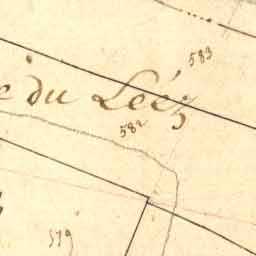 583
e du Leéz
582
579